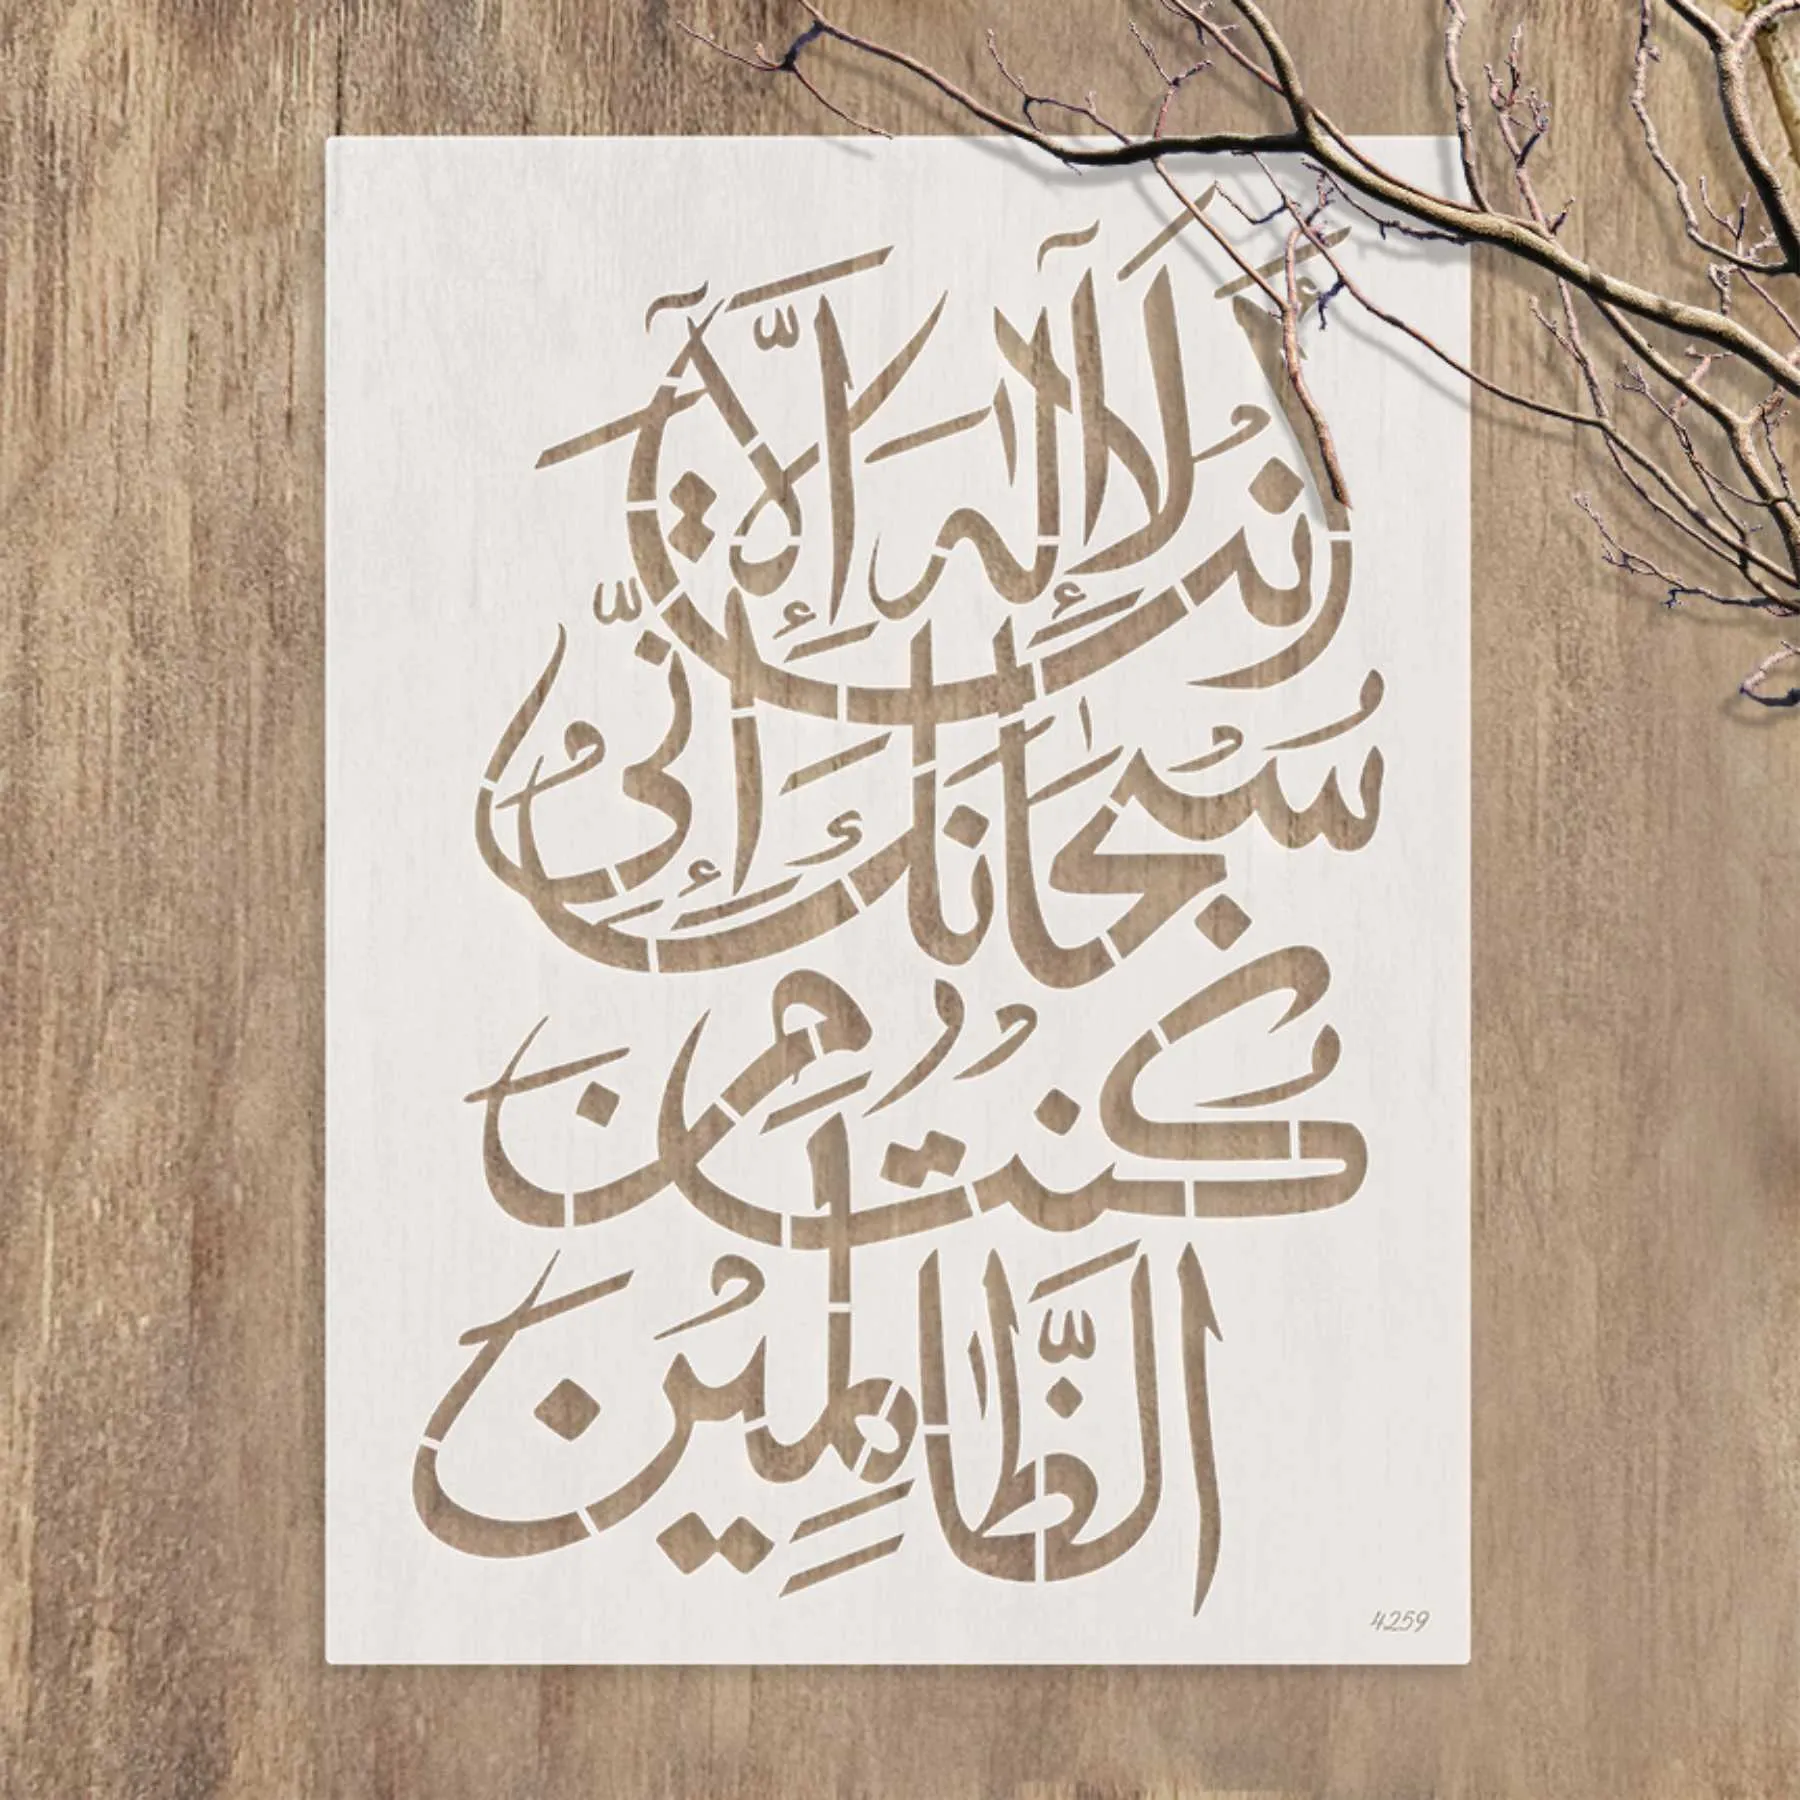 أَن لَّا إِلَٰهَ إِلَّا أَنتَ
سُبْحَانَكَ إِنِّي
كُنتُ مِنَ
الظَّالِمِينَ
4259